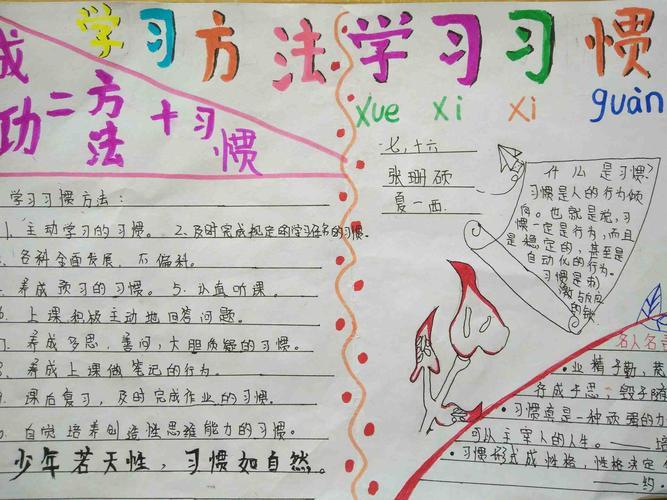 学习方法
成功二方法+习惯
学习习惯方法：
1. 主动学习的习惯。 2. 及时完成规定的学习任务的习惯。
各科全面发展，不偏科。
养成预习的习惯。 5. 认真听课。
上课积极主动地回答问题。
养成多思、善问，大胆质疑的习惯。
养成上课做笔记的行为。
课后复习，及时完成作业的习惯。
自觉培养创造性思维能力的习惯。
少年若天性，习惯如自然。
学习习惯
Xue Xi Xi guàn
七，十六
张珊硕
夏一西
什么是习惯？
习惯是人的行为倾
向。也就是说，习
惯一定是行为，而且
是稳定的，甚至是
自动化的行为。
习惯是刺
激与反应
的锁
名人名言
·业精于勤，荒
行成于思，毁于随
·习惯真是一种顽强的力
可以主宰人的人生。——培
·习惯形式成性格，性格决定
——约